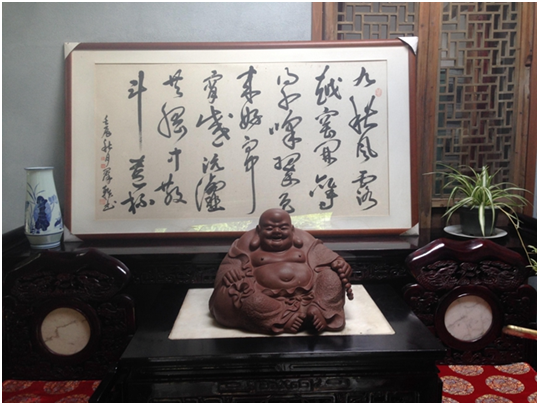 九秋風露
越窑開奪
得千峰翠色
来好向中
宵盛沆瀣
共嵇中散
斗遺杯
壬辰秋月